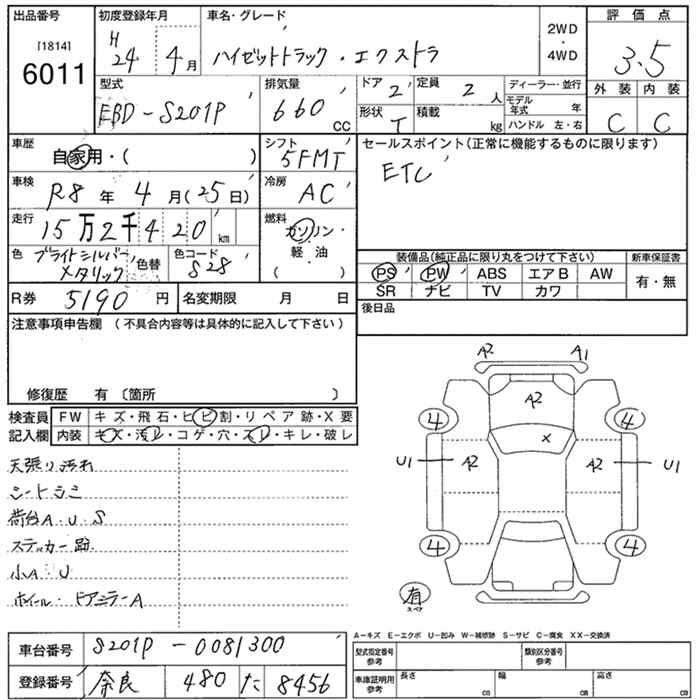 出品番号
[1814]
6011
初度登録年月
H24 4月
車名・グレード
ハイゼットトラック・エクストラ
2WD
・
4WD
評価点
3.5
型式
EBD-S201P
排気量
660 CC
ドア 2
定員 2 人
形状 T
積載 kg
ディーラー・並行
モデル年式 年
ハンドル 左・右
外装 内装
C C
車歴
自家用・( )
シフト
5FMT
セールスポイント(正常に機能するものに限ります)
ETC
車検
R8年4月(25日)
冷房
AC
走行
15万2千420km
燃料
ガソリン・
軽・油
( )
色
ブライトシルバーメタリック
色替
色コード
S28
装備品(純正品に限り丸をつけて下さい)
新車保証書
PS PW ABS エアB AW
有・無
SR ナビ TV カワ
R券 5190 円
名変期限 月 日
後日品
注意事項申告欄 (不具合内容等は具体的に記入して下さい)
修復歴 有 〔箇所 〕
検査員
記入欄
FW キズ・飛石・ヒビ割・リペア跡・X要
内装 キズ・汚レ・コゲ・穴・スレ・キレ・破レ
天張り汚れ
シートシミ
荷台A.U.S
ステッカー跡
小A.U
ホイール・ドアミラーA
A2 A1
A2
4 4
X
U1 A2 A2 U1
4 4
有
スペア
A-キズ E-エクボ U-凹み W-補修跡 S-サビ C-腐食 XX-交換済
車台番号 S201P-0081300
型式指定番号
参考
類別区分番号
参考
登録番号 奈良 480 た 8456
車庫証明用
参考
長さ cm
幅 cm
高さ cm